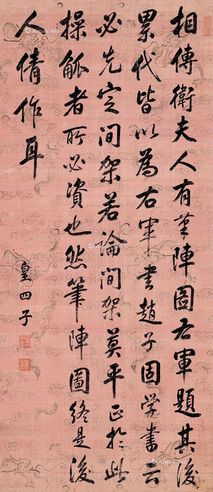 相傳衛夫人有筆陣圖右軍題其後
累代皆以為右軍書趙子固學書云
必先定間架若論間架莫平正於此
操觚者所必資也然筆陣圖終是後
人倩作耳
皇四子